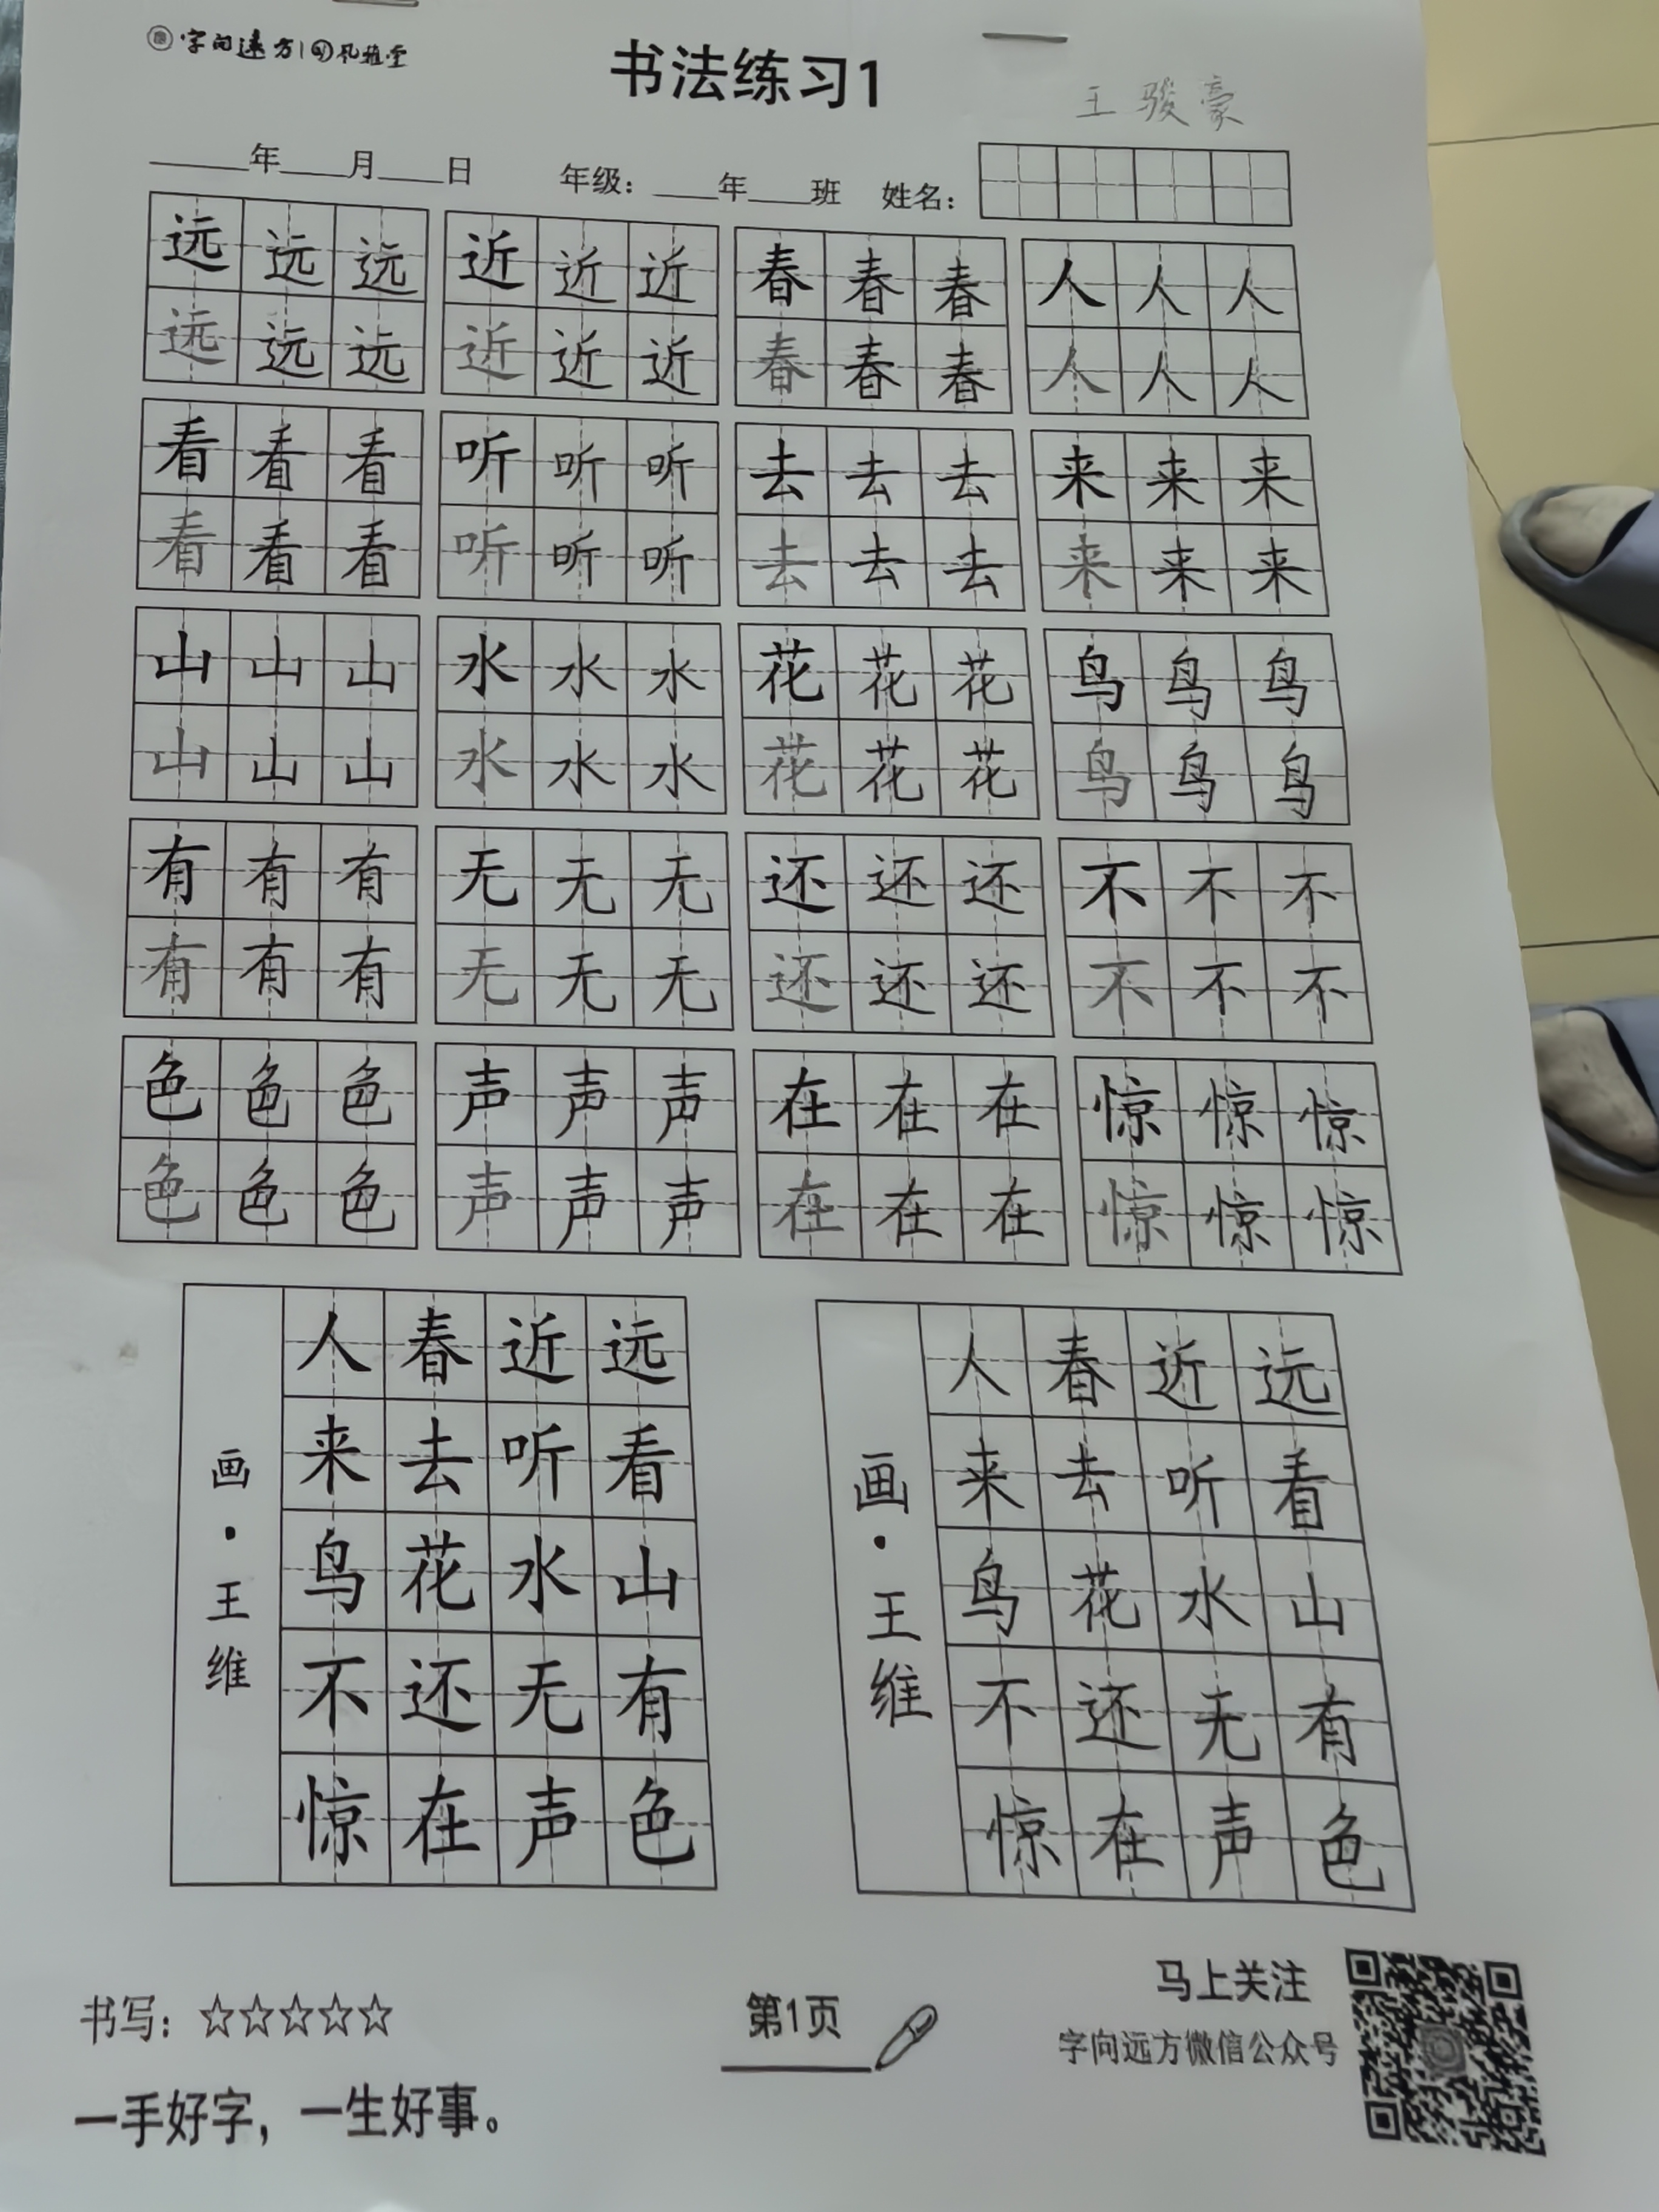 字向远方 孔雅堂
书法练习1
王骏豪
年 月 日 年级: 年 班 姓名:
远远远 近近近 春春春 人人人
远远远 近近近 春春春 人人人
看看看 听听听 去去去 来来来
看看看 听听听 去去去 来来来
山山山 水水水 花花花 鸟鸟鸟
山山山 水水水 花花花 鸟鸟鸟
有有有 无无无 还还还 不不不
有有有 无无无 还还还 不不不
色色色 声声声 在在在 惊惊惊
色色色 声声声 在在在 惊惊惊
远看山有色
近听水无声
春去花还在
人来鸟不惊
画·王维
远看山有色
近听水无声
春去花还在
人来鸟不惊
画·王维
书写: ☆☆☆☆☆
一手好字，一生好事。
第1页
马上关注
字向远方微信公众号